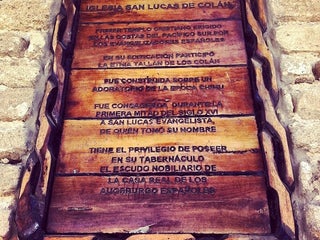 IGLESIA SAN LUCAS DE COLÁN
PRIMER TEMPLO CRISTIANO ERIGIDO
EN LAS COSTAS DEL PACIFICO SUR POR
LOS EVANGELIZADORES ESPAÑOLES
EN SU EDIFICACION PARTICIPÓ
LA ETNIA TALLAN DE LOS COLÁN
FUE CONSTRUIDA SOBRE UN
ADORATORIO DE LA EPOCA CHIMU
FUE CONSAGRADA DURANTE LA
PRIMERA MITAD DEL SIGLO XVI
A SAN LUCAS EVANGELISTA
DE QUIEN TOMO SU NOMBRE
TIENE EL PRIVILEGIO DE POSEER
EN SU TABERNÁCULO
EL ESCUDO NOBILIARIO DE
LA CASA REAL DE LOS
AUGSBURGO ESPAÑOLES